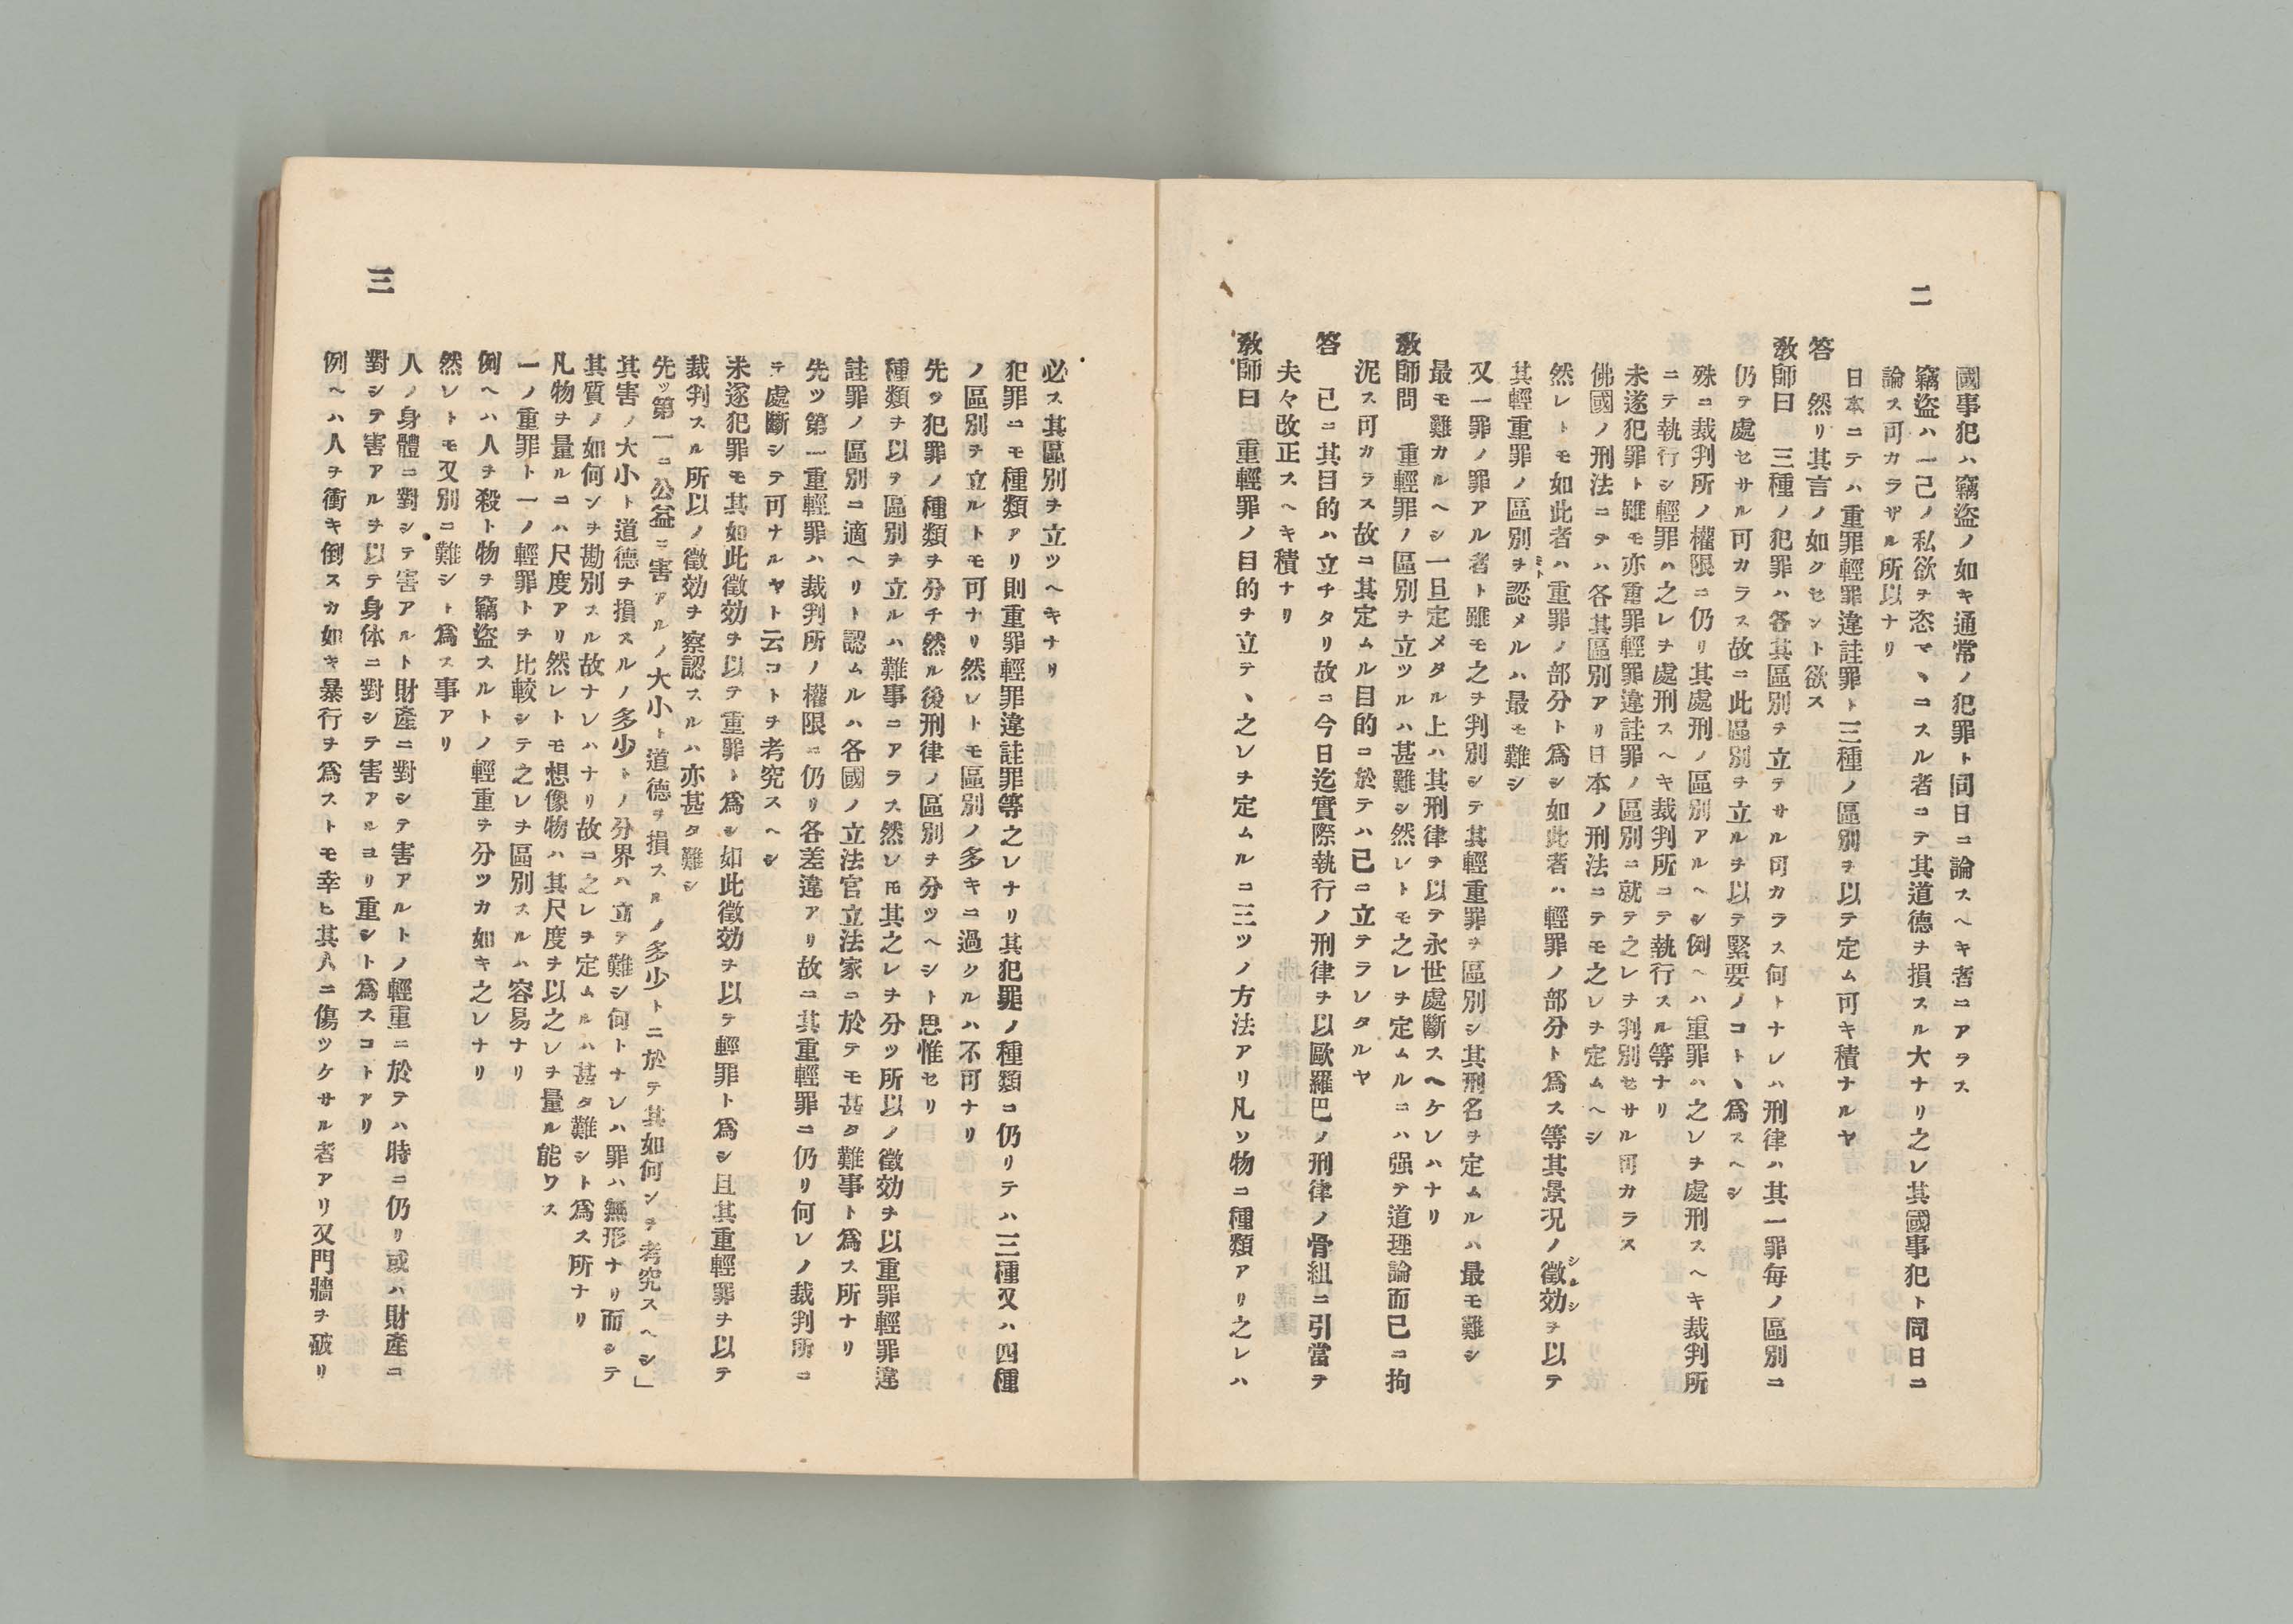 二
國事犯ハ竊盜ノ如キ通常ノ犯罪ト同日ニ論スヘキ者ニアラス
竊盜ハ一己ノ私欲ヲ恣マヽニスル者ニテ其道德ヲ損スル大ナリ之レ其國事犯ト同日ニ
論ス可カラザル所以ナリ
日本ニテハ重罪輕罪違註罪ト三種ノ區別ヲ以テ定ム可キ積ナルヤ
答　然リ其言ノ如クセント欲ス
敎師曰　三種ノ犯罪ハ各其區別ヲ立テサル可カラス何トナレハ刑律ハ其一罪每ノ區別ニ
仍テ處セサル可カラス故ニ此區別ヲ立ルヲ以テ緊要ノコトヽ爲スヘシ
殊ニ裁判所ノ權限ニ仍リ其處刑ノ區別アルヘシ例ヘハ重罪ハ之レヲ處刑スヘキ裁判所
ニテ執行シ輕罪ハ之レヲ處刑スヘキ裁判所ニテ執行スル等ナリ
未遂犯罪ト雖モ亦重罪輕罪違註罪ノ區別ニ就テ之レヲ判別セサル可カラス
佛國ノ刑法ニテハ各其區別アリ日本ノ刑法ニテモ之レヲ定ムヘシ
然レトモ如此者ハ重罪ノ部分ト爲シ如此者ハ輕罪ノ部分ト爲ス等其景況ノ徵効ヲ以テ
其輕重罪ノ區別ヲ認メルハ最モ難シ
又一罪ノ罪アル者ト雖モ之ヲ判別シテ其輕重罪ヲ區別シ其刑名ヲ定ムルハ最モ難シ
最モ難カルヘシ一旦定メタル上ハ其刑律ヲ以テ永世處斷スヘケレハナリ
敎師問　重輕罪ノ區別ヲ立ツルハ甚難シ然レトモ之レヲ定ムルニハ强テ道理論而已ニ拘
泥ス可カラス故ニ其定ムル目的ニ於テハ已ニ立テラレタルヤ
答　已ニ其目的ハ立チタリ故ニ今日迄實際執行ノ刑律ヲ以歐羅巴ノ刑律ノ骨組ニ引當テ
夫々改正スヘキ積ナリ
敎師曰　重輕罪ノ目的ヲ立テヽ之レヲ定ムルニ三ツノ方法アリ凡ソ物ニ種類アリ之レハ
三
必ス其區別ヲ立ツヘキナリ
犯罪ニモ種類アリ則重罪輕罪違註罪等之レナリ其犯罪ノ種類ニ仍リテハ三種又ハ四種
ノ區別ヲ立ルトモ可ナリ然レトモ區別ノ多キニ過クルハ不可ナリ
先ツ犯罪ノ種類ヲ分チ然ル後刑律ノ區別ヲ分ツヘシト思惟セリ
種類ヲ以テ區別ヲ立ルハ難事ニアラス然レ𪜈其之レヲ分ツ所以ノ徵効ヲ以重罪輕罪違
註罪ノ區別ニ適ヘリト認ムルハ各國ノ立法官立法家ニ於テモ甚タ難事ト爲ス所ナリ
先ツ第一重輕罪ハ裁判所ノ權限ニ仍リ各差違アリ故ニ其重輕罪ニ仍リ何レノ裁判所ニ
テ處斷シテ可ナルヤト云コトヲ考究スヘシ
未遂犯罪モ其如此徵効ヲ以テ重罪ト爲シ如此徵効ヲ以テ輕罪ト爲シ且其重輕罪ヲ以テ
裁判スル所以ノ徵効ヲ察認スルハ亦甚タ難シ
先ッ第一ニ公益ニ害アルノ大小ト道德ヲ損スルノ多少トニ於テ其如何ンヲ考究スヘシ」
其害ノ大小ト道德ヲ損スルノ多少トノ分界ハ立テ難シ何トナレハ罪ハ無形ナリ而シテ
其質ノ如何ンヲ勘別スル故ナレハナリ故ニ之レヲ定ムルハ甚タ難シト爲ス所ナリ
凡物ヲ量ルニハ尺度アリ然レトモ想像物ハ其尺度ヲ以之レヲ量ル能ワス
一ノ重罪ト一ノ輕罪トヲ比較シテ之レヲ區別スルハ容易ナリ
例ヘハ人ヲ殺ト物ヲ竊盜スルトノ輕重ヲ分ツカ如キ之レナリ
然レトモ又別ニ難シト爲ス事アリ
人ノ身體ニ對シテ害アルト財產ニ對シテ害アルトノ輕重ニ於テハ時ニ仍リ或ハ財產ニ
對シテ害アルヲ以テ身体ニ對シテ害アルヨリ重シト爲スコトアリ
例ヘハ人ヲ衝キ倒スカ如キ暴行ヲ爲ストモ幸ヒ其人ニ傷ツケサル者アリ又門牆ヲ破リ